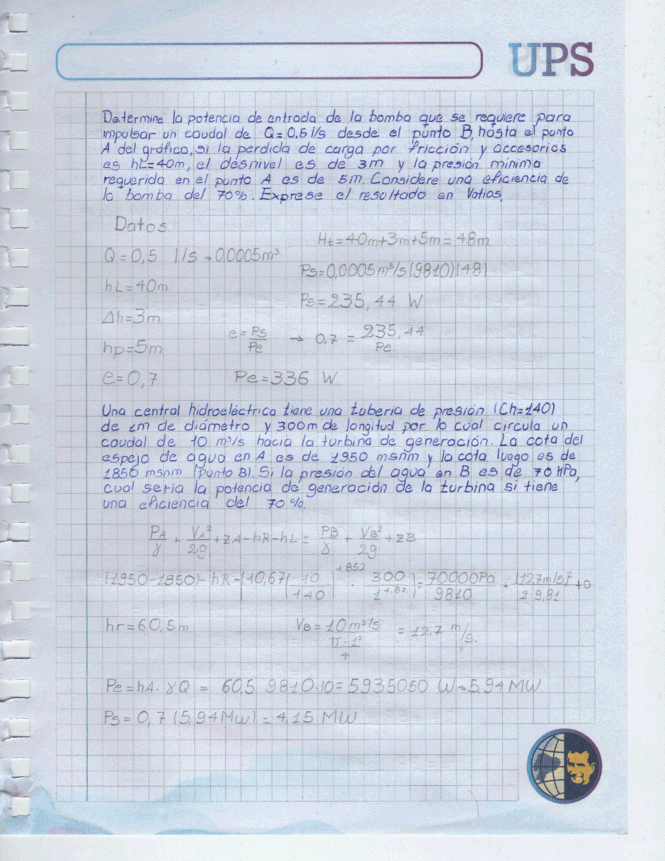 UPS
Determine la potencia de entrada de la bomba que se requiere para
impulsar un caudal de Q=0,5 l/s desde el punto B, hasta el punto
A del gráfico, si la perdida de carga por fricción y accesorios
es hL=40m, el desnivel es de 3m y la presión mínima
requerida en el punto A es de 5m. Considere una eficiencia de
la bomba del 70%. Exprese el resultado en Vatios.
Datos
Ht=40m+3m+5m=48m
Q=0,5 l/s → 0,0005m³
Ps=0,0005m³/s(9810)(48)
hL=40m
Ps=235,44 W
Δh=3m
e=Ps/Pe → 0,7=235,44/Pe
hp=5m
e=0,7 Pe=336 W
Una central hidroeléctrica tiene una tuberia de presión (Ch=140)
de 1m de diámetro y 300m de longitud por lo cual circula un
caudal de 10 m³/s hacia la turbina de generación. La cota del
espejo de agua en A es de 1950 msnm y la cota luego es de
1850 msnm (punto B). Si la presión del agua en B es de 70 KPa,
cual seria la potencia de generación de la turbina si tiene
una eficiencia del 70%.
PA/γ + VA²/2g + zA - hR - hL = PB/γ + VB²/2g + zB
(1950-1850) - hR - (10,67(10/140)^1,852 · 300/1^4,87) = 70000Pa/9810 + (12,7m/s)²/2·9,81 + 0
hr=60,5m VB=10m³/s / (π·1²/4) = 12,7 m/s.
Pe=hA·γQ = 60,5 9810·10=5935050 W→5,94 MW
Ps=0,7(5,94MW)=4,15 MW